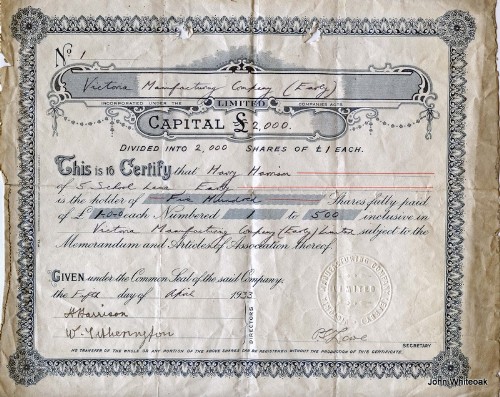 No. 1
Victoria Manufacturing Company (Early)
INCORPORATED UNDER THE LIMITED COMPANIES ACTS
CAPITAL £2,000.
DIVIDED INTO 2,000 SHARES OF £1 EACH.
This is to Certify that Harry Harrison
of 5 School Lane Early
is the holder of Five Hundred Shares fully paid
of £1-0-0 each Numbered 1 to 500 inclusive in
Victoria Manufacturing Company (Early) Limited subject to the
Memorandum and Articles of Association thereof.
GIVEN under the Common Seal of the said Company,
the Fifth day of April 1933
H Harrison
DIRECTORS
LIMITED
SECRETARY
NO TRANSFER OF THE WHOLE OR ANY PORTION OF THE ABOVE SHARES CAN BE REGISTERED WITHOUT THE PRODUCTION OF THIS CERTIFICATE.
John Whiteoak